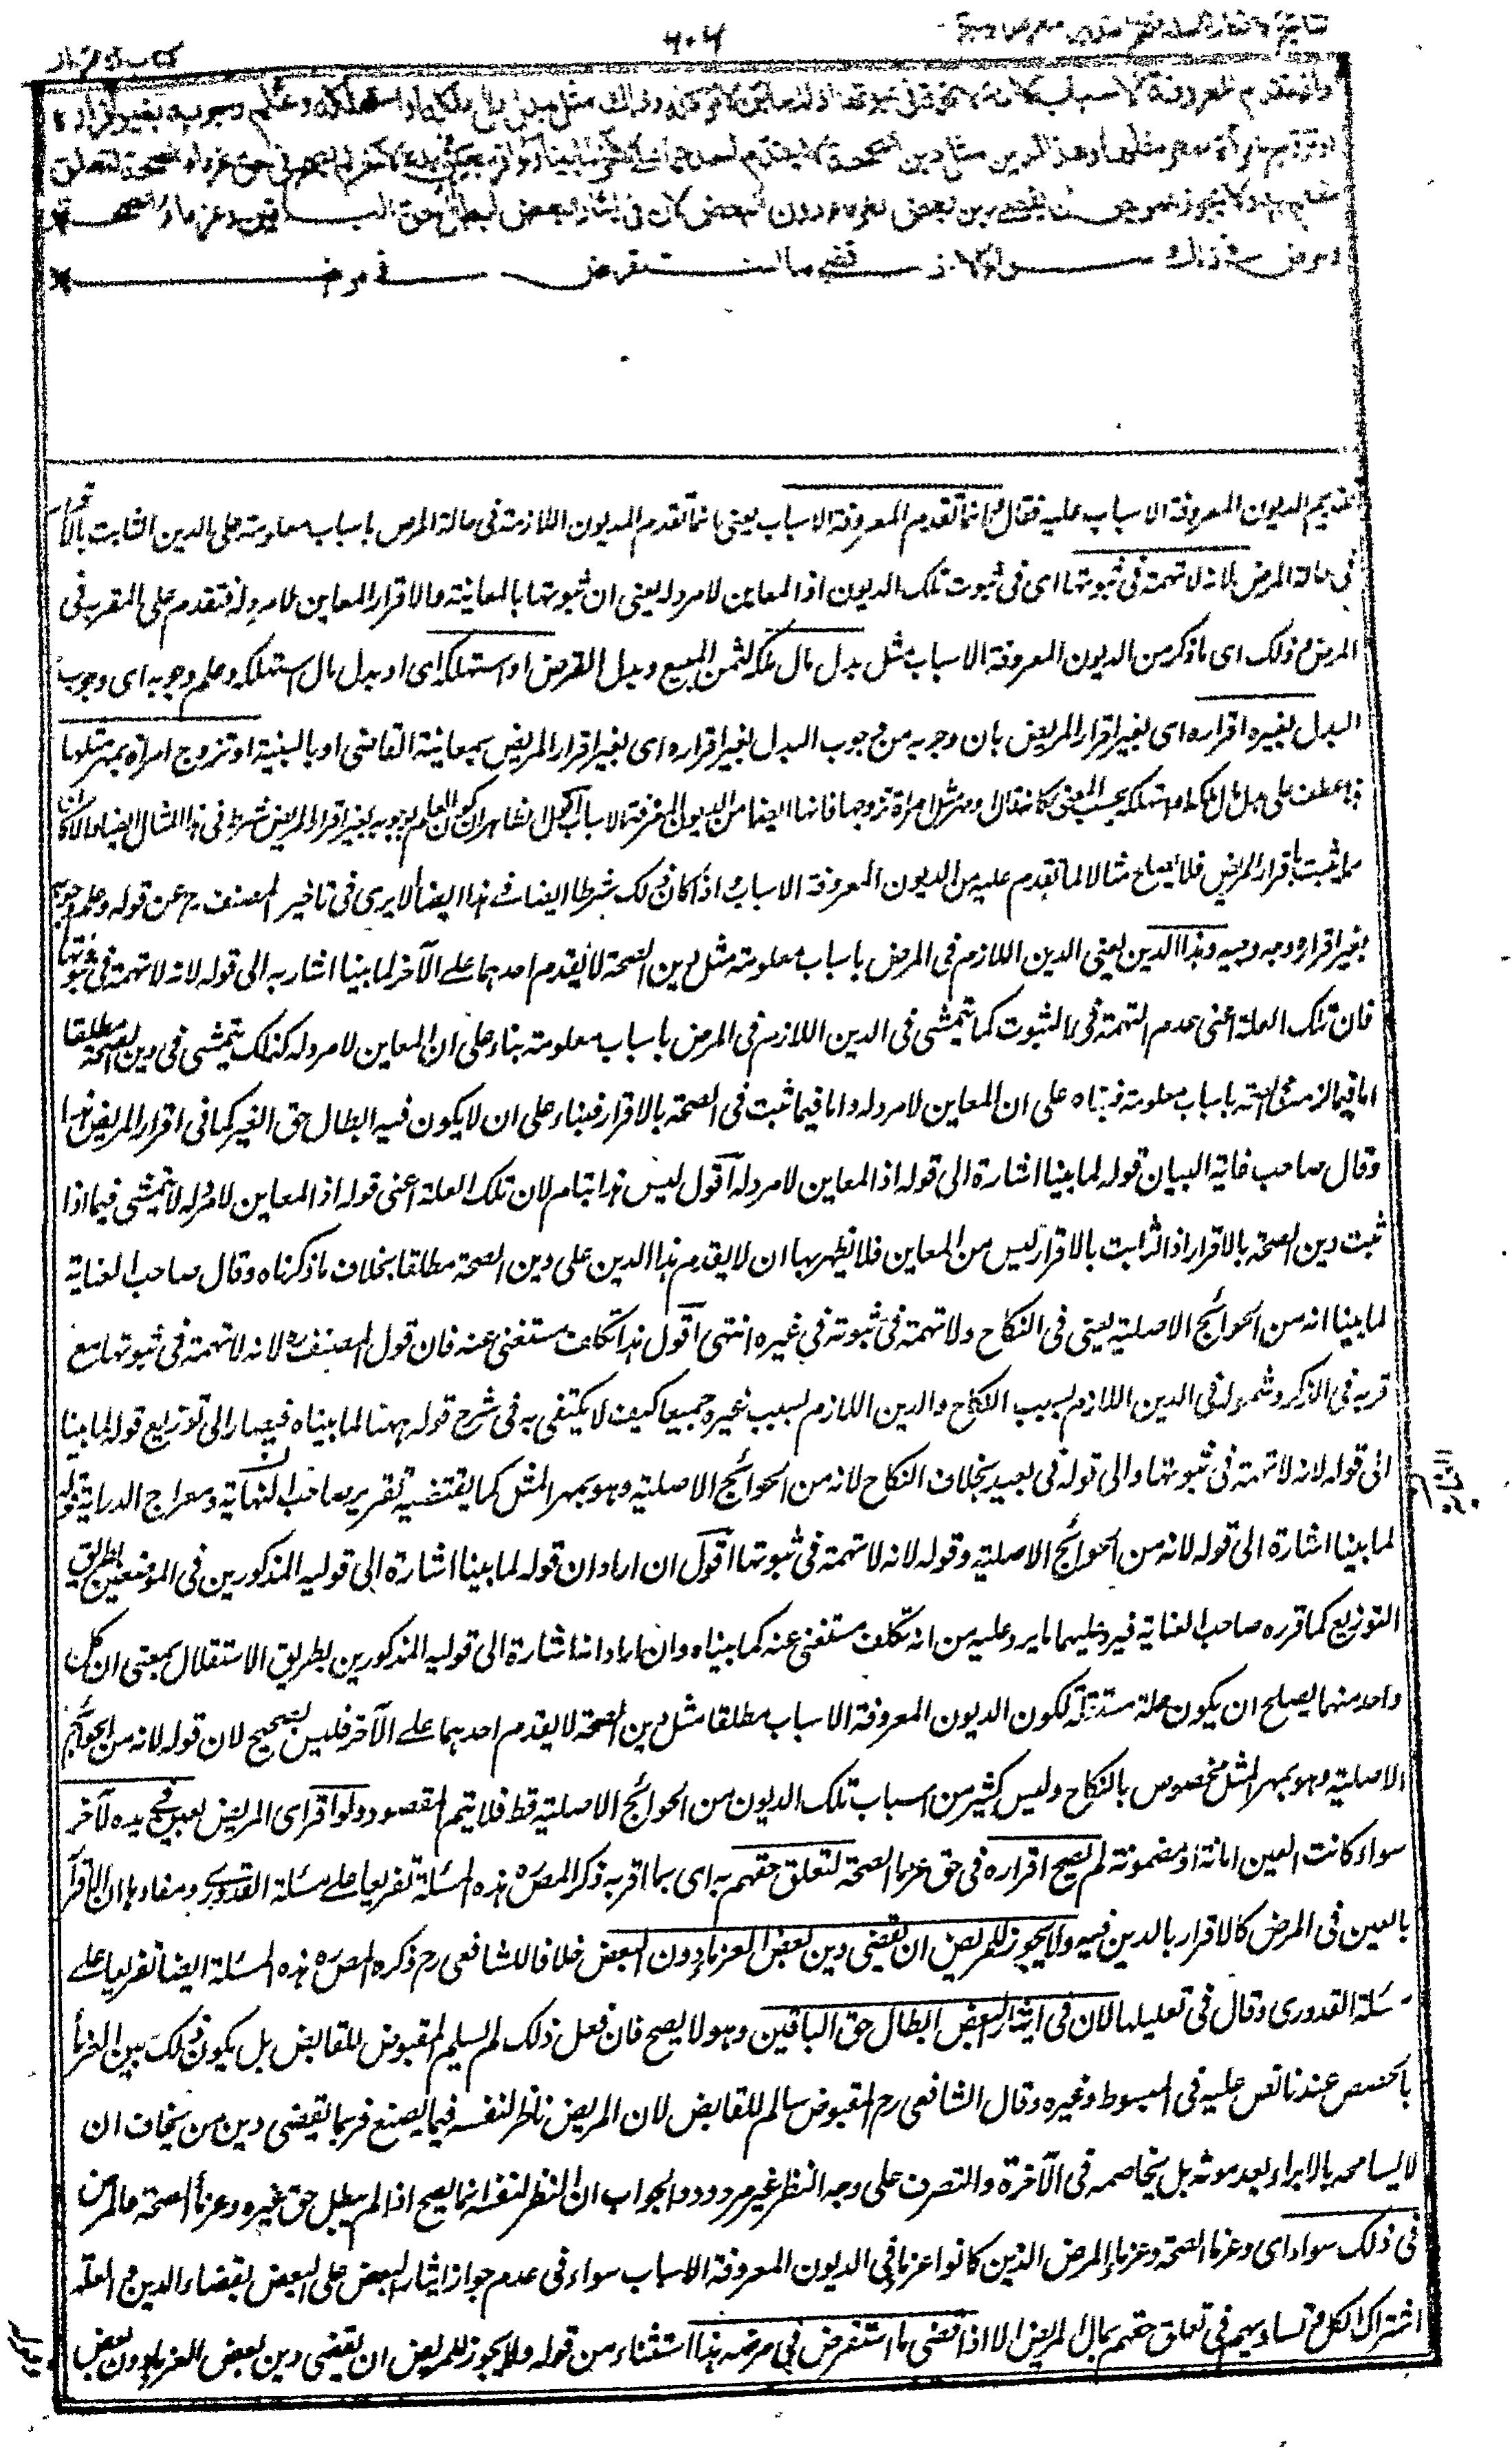 ٦٠٤
وانما تقدم المعروفة الاسباب لانه لا تهمة فى ثبوتها اذ المعاين لا مرد له وذلك مثل بدل مال ملكه او استهلكه وعلم وجوبه بغير اقراره
او تزوج امرأة بمهر مثلها وهذا الدين مثل دين الصحة لا يقدم احدهما على الآخر لما بينا ولو اقر بعين فى يده لآخر لم يصح فى حق غرماء الصحة لتعلق
حقهم به ولا يجوز للمريض ان يقضى دين بعض الغرماء دون البعض لان فى ايثار البعض ابطال حق الباقين وغرماء الصحة
والمرض فى ذلك سواء الا اذا قضى ما استقرض فى مرضه
تقديم الديون المعروفة الاسباب عليه فقال م وانما تقدم المعروفة الاسباب يعنى انما تقدم الديون اللازمة فى حالة المرض باسباب معلومة على الدين الثابت بالاقرار
فى حالة المرض لانه لا تهمة فى ثبوتها اى فى ثبوت تلك الديون اذ المعاين لا مرد له يعنى ان ثبوتها بالمعاينة والاقرار المعاين لا مرد له فتقدم على المقر به فى
المرض م وذلك اى ما ذكر من الديون المعروفة الاسباب مثل بدل مال ملكه كثمن المبيع وبدل القرض او استهلكه اى او بدل مال استهلكه وعلم وجوبه اى وجوب
البدل بغيره اقراره اى بغير اقرار المريض بان وجوبه من وجوب البدل بغير اقراره اى بغير اقرار المريض بمعاينة القاضى او بالبينة او تزوج امرأة بمهر مثلها
هذا عطف على بدل مال ملكه او استهلكه بحسب المعنى كانه قال او مهر مثل امرأة تزوجها فانها ايضا من الديون المعروفة الاسباب اقول الظاهر ان كون العلم بوجوبه بغير اقرار المريض شرط فى هذا المثال ايضا والا كان
مما ثبت باقرار المريض فلا يصلح مثالا لما تقدم عليه من الديون المعروفة الاسباب واذا كان ذلك شرطا ايضا فى هذا ايضا لا يرى فى تاخير المصنف رح عن قوله وعلم وجوبه
بغير اقراره وجه وجيه وهذا الدين يعنى الدين اللازم فى المرض باسباب معلومة مثل دين الصحة لا يقدم احدهما على الآخر لما بينا اشار به الى قوله لانه لا تهمة فى ثبوتها
فان تلك العلة اعنى عدم التهمة فى الثبوت كما تتمشى فى الدين اللازم فى المرض باسباب معلومة بناء على ان المعاين لا مرد له كذلك تتمشى فى دين الصحة مطلقا
اما فيما لزم فى الصحة باسباب معلومة فبناه على ان المعاين لا مرد له واما فيما ثبت فى الصحة بالاقرار فبناء على ان لا يكون فيه ابطال حق الغير كما فى اقرار المريض هذا
وقال صاحب غاية البيان قوله لما بينا اشارة الى قوله اذ المعاين لا مرد له اقول ليس هذا بتام لان تلك العلة اعنى قوله اذ المعاين لا مرد له لا تتمشى فيما اذا
ثبت دين الصحة بالاقرار اذ الثابت بالاقرار ليس من المعاين فلا يظهر بها ان لا يقدم هذا الدين على دين الصحة مطلقا بخلاف ما ذكرناه وقال صاحب العناية
لما بينا انه من الحوائج الاصلية يعنى فى النكاح ولا تهمة فى ثبوته فى غيره انتهى اقول هذا تكلف مستغنى عنه فان قول المصنف رہ لانه لا تهمة فى ثبوتها مع
قربه فى الذكر وشموله فى الدين اللازم بسبب النكاح والدين اللازم بسبب غيره جميعا كيف لا يكتفى به فى شرح قوله ههنا لما بيناه فيصار الى توزيع قوله لما بينا
الى قوله لانه لا تهمة فى ثبوتها والى قوله فى بعيد بخلاف النكاح لانه من الحوائج الاصلية وهو بمهر المثل كما يقتضيه تقرير صاحب النهاية ومعراج الدراية قوله
لما بينا اشارة الى قوله لانه من الحوائج الاصلية وقوله لانه لا تهمة فى ثبوتها اقول ان اراد ان قوله لما بينا اشارة الى قوليه المذكورين فى الموضعين بطريق
التوزيع كما قرره صاحب العناية فيرد عليهما ما يرد عليه من انه تكلف مستغنى عنه كما بيناه وان اراد انها اشارة الى قوليه المذكورين بطريق الاستقلال بمعنى ان كل
واحد منهما يصلح ان يكون علة مستقلة لكون الديون المعروفة الاسباب مطلقا مثل دين الصحة لا يقدم احدهما على الآخر فليس بصحيح لان قوله لانه من الحوائج
الاصلية وهو بمهر المثل مخصوص بالنكاح وليس كثير من اسباب تلك الديون من الحوائج الاصلية قط فلا يتم المقصود ولو اقر اى المريض بعين فى يده لآخر
سواء كانت العين امانة او مضمونة لم يصح اقراره فى حق غرماء الصحة لتعلق حقهم به اى بما اقر به ذكر المص رہ هذه المسئلة تفريعا على مسئلة القدورى ومفادها ان الاقرار
بالعين فى المرض كالاقرار بالدين فيه ولا يجوز للمريض ان يقضى دين بعض الغرماء دون البعض خلافا للشافعى رح ذكره المص رہ هذه المسئلة ايضا تفريعا على
مسئلة القدورى وقال فى تعليلها لان فى ايثار البعض ابطال حق الباقين وهو لا يصح فان فعل ذلك لم يسلم المقبوض للقابض بل يكون ذلك بين الغرماء
بالحصص عندنا نص عليه فى المبسوط وغيره وقال الشافعى رح المقبوض سالم للقابض لان المريض ناظر لنفسه فيما يصنع فربما يقضى دين من يخاف ان
لا يسامحه بالابراء بعد موته بل يخاصمه فى الآخرة والتصرف على وجه النظر غير مردود والجواب ان النظر لنفسه انما يصح اذا لم يبطل حق غيره وغرماء الصحة والمرض
فى ذلك سواء اى وغرماء الصحة وغرماء المرض الذين كانوا غرماء فى الديون المعروفة الاسباب سواء فى عدم جواز ايثار البعض على البعض بقضاء الدين لعلة
اشتراك الكل وتساويهم فى تعلق حقهم بمال المريض الا اذا قضى ما استقرض فى مرضه هذا استثناء من قوله ولا يجوز للمريض ان يقضى دين بعض الغرماء دون بعض